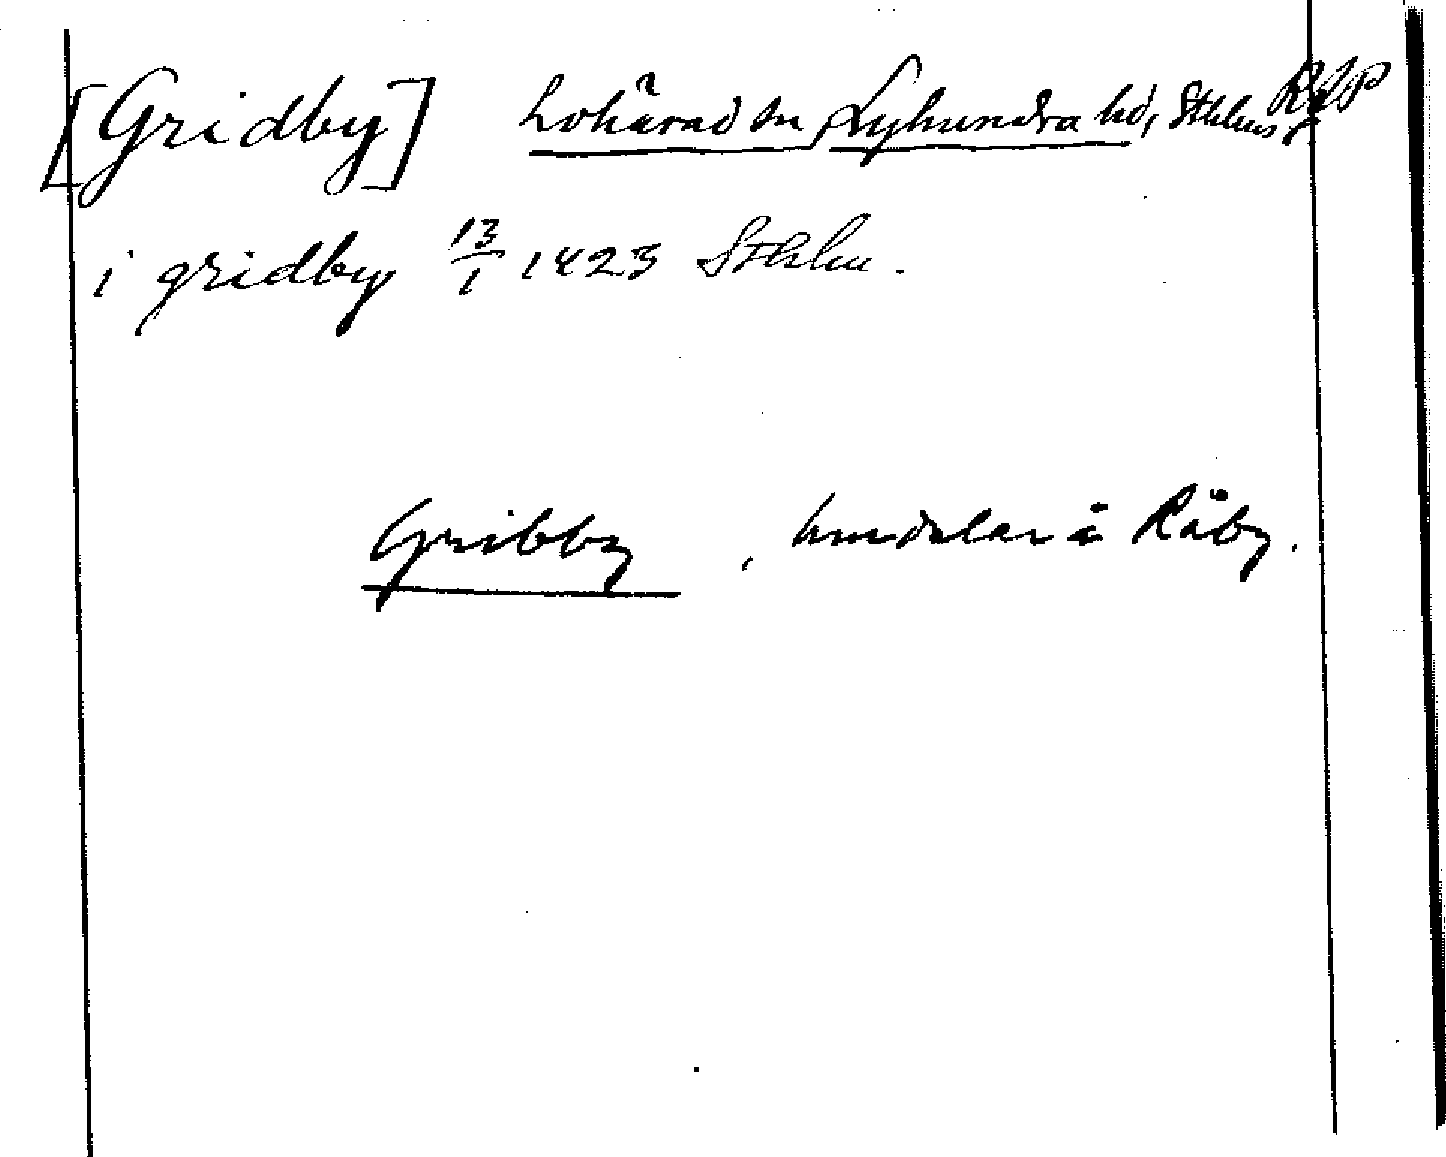 [Gridby] Lohärad sn Lyhundra hd, Sthlms
i gridby 13/1 1423 Sthlm.
Gribby, å Råby.